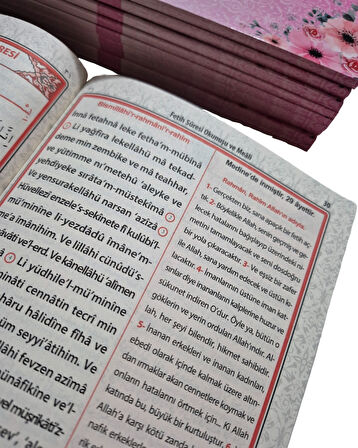 RESİ
Fetih Sûresi Okunuşu ve Meâli
39
Bismillâhi'r-rahmâni'r-rahîm
innâ fetahnâ leke fetha'm-mübînâ
① Li yağfira lekellâhü mâ tekad-
deme min zembike ve mâ teahhar,
ve yütimme nı'metehû 'aleyke ve
yehdiyeke sırâta'm-müstekîmâ ②
Ve yensurakellâhü narsan 'azîzâ ③
Hüvellezî enzele's-sekînete fî kulûbi'l-
mü'minîne li-yezdâdû îmâne'm-
me'a îmânihim. Ve lillâhi cünûdü's-
vâti ve'l-erd. Ve kânellâhü 'alîmen
④ Li yüdhile'l-mü'minîne
minâti cennâtin tecrî min
hâru hâlidîne fîhâ ve
üm seyyi'âtihim. Ve
llâhi fevzen azîmâ
münâfikîne ve'l-
vel müşrikâti'z-
Medine'de inmiştir, 29 âyettir.
Rahmân, Rahîm Allah'ın adıyla.
1- Gerçekten biz sana apaçık bir fetih aç-
tık. 2- Böylelikle Allah, senin geçmiş ve ge-
lecek hatalarını bağışlayıp üzerindeki ni-
metini tamamlayacak ve seni dosdoğru
bir yola çıkaracaktır. 3- Ve eşsiz bir zafer
ile Allah, sana yardım edecek ve üstün kı-
lacaktır. 4- İnanlarının üstüne iman kat-
sınlar diye inananların kalplerine huzur ve
sükunet indiren O'dur. Öyle ya, bütün o
göklerin ve yerin orduları Allah'ındır. Al-
lah, her şeyi bilendir, hikmet sahibidir.
5- İnanan erkekleri ve inanan kadınları,
ebedi olarak içinde kalmak üzere altın-
dan ırmaklar akan cennetlere koymak ve
onların hatalarını örtmek için... Ki Allah
katında bu, büyük bir kurtuluştur. 6-
Allah'a karşı kötü zanda
nafik erkekler